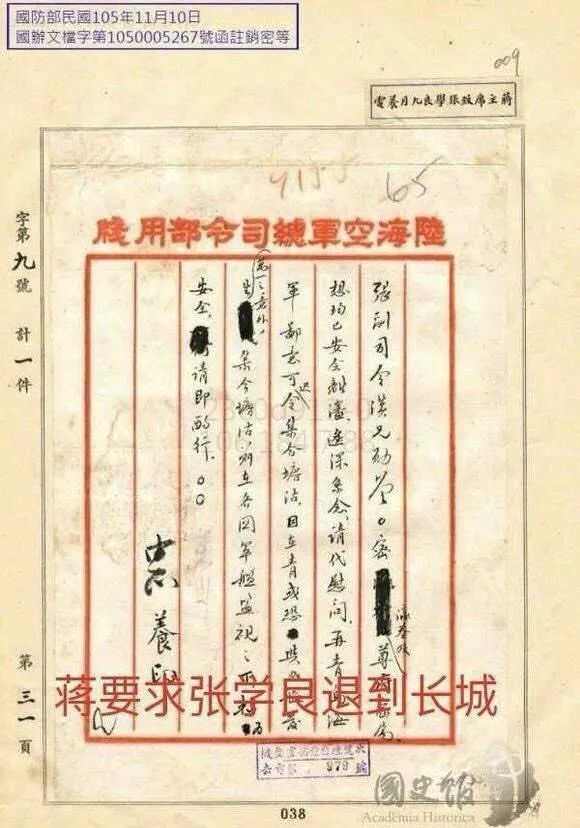 國防部民國105年11月10日
國辦文檔字第1050005267號函註銷密等
009
蔣主席致張學良九月養電
65
陸海空軍總司令部用牋
張副司令漢兄勛鑒。密 瀛眷及尊府家屬
想均已安全離瀋 遙深系念 請代慰問 再青島海
軍鄙意可迅令集合塘沽 因在青或恐
萬一之意外
集合塘沽 則在各國軍艦監視之下
安全 請即酌行。○○
中正 養印
字第九號 計一件 第三一頁
蒋要求张学良退到长城
979
國史館
Academia Historica
038